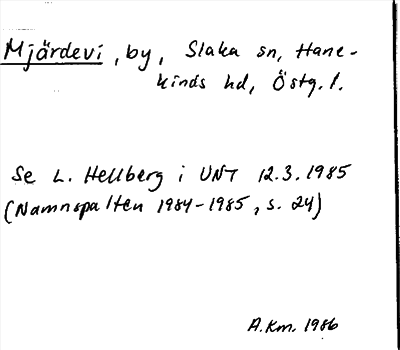 Mjärdevi, by, Slaka sn, Hane-
kinds hd, Östg. l.
Se L. Hellberg i UNT 12.3.1985
(Namnspalten 1984-1985, s. 24)
A.Km. 1986